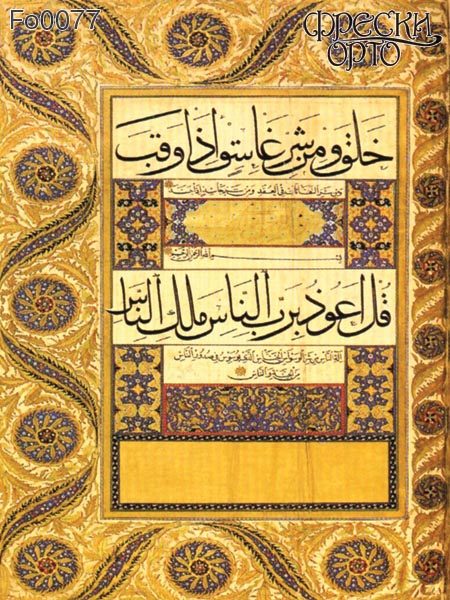 Fo0077
Фрески
Орто
خلق ومن شر غاسق اذا وقب
ومن شر النفاثات في العقد ومن شر حاسد اذا حسد
بسم الله الرحمن الرحيم
قل اعوذ برب الناس ملك الناس
اله الناس من شر الوسواس الخناس الذي يوسوس في صدور الناس
من الجنة والناس